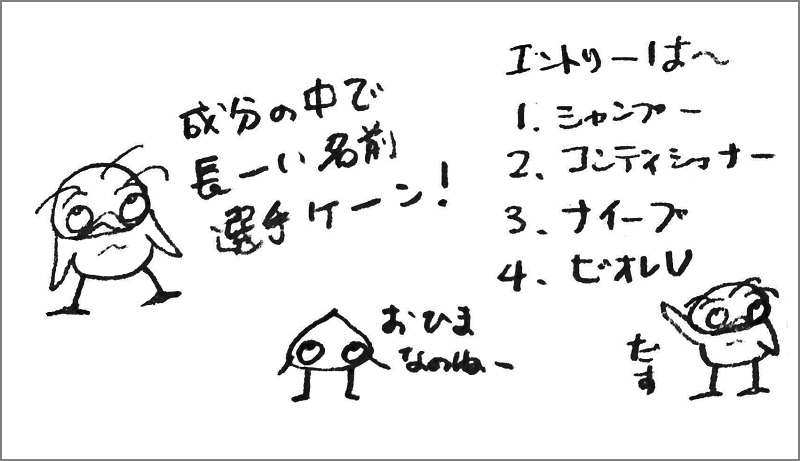 成分の中で
長ーい名前
選手ケーン!
エントリーは〜
1. シャンプー
2、コンディショナー
3、ナイーブ
4、ビオレU
おひま
なのねー
です